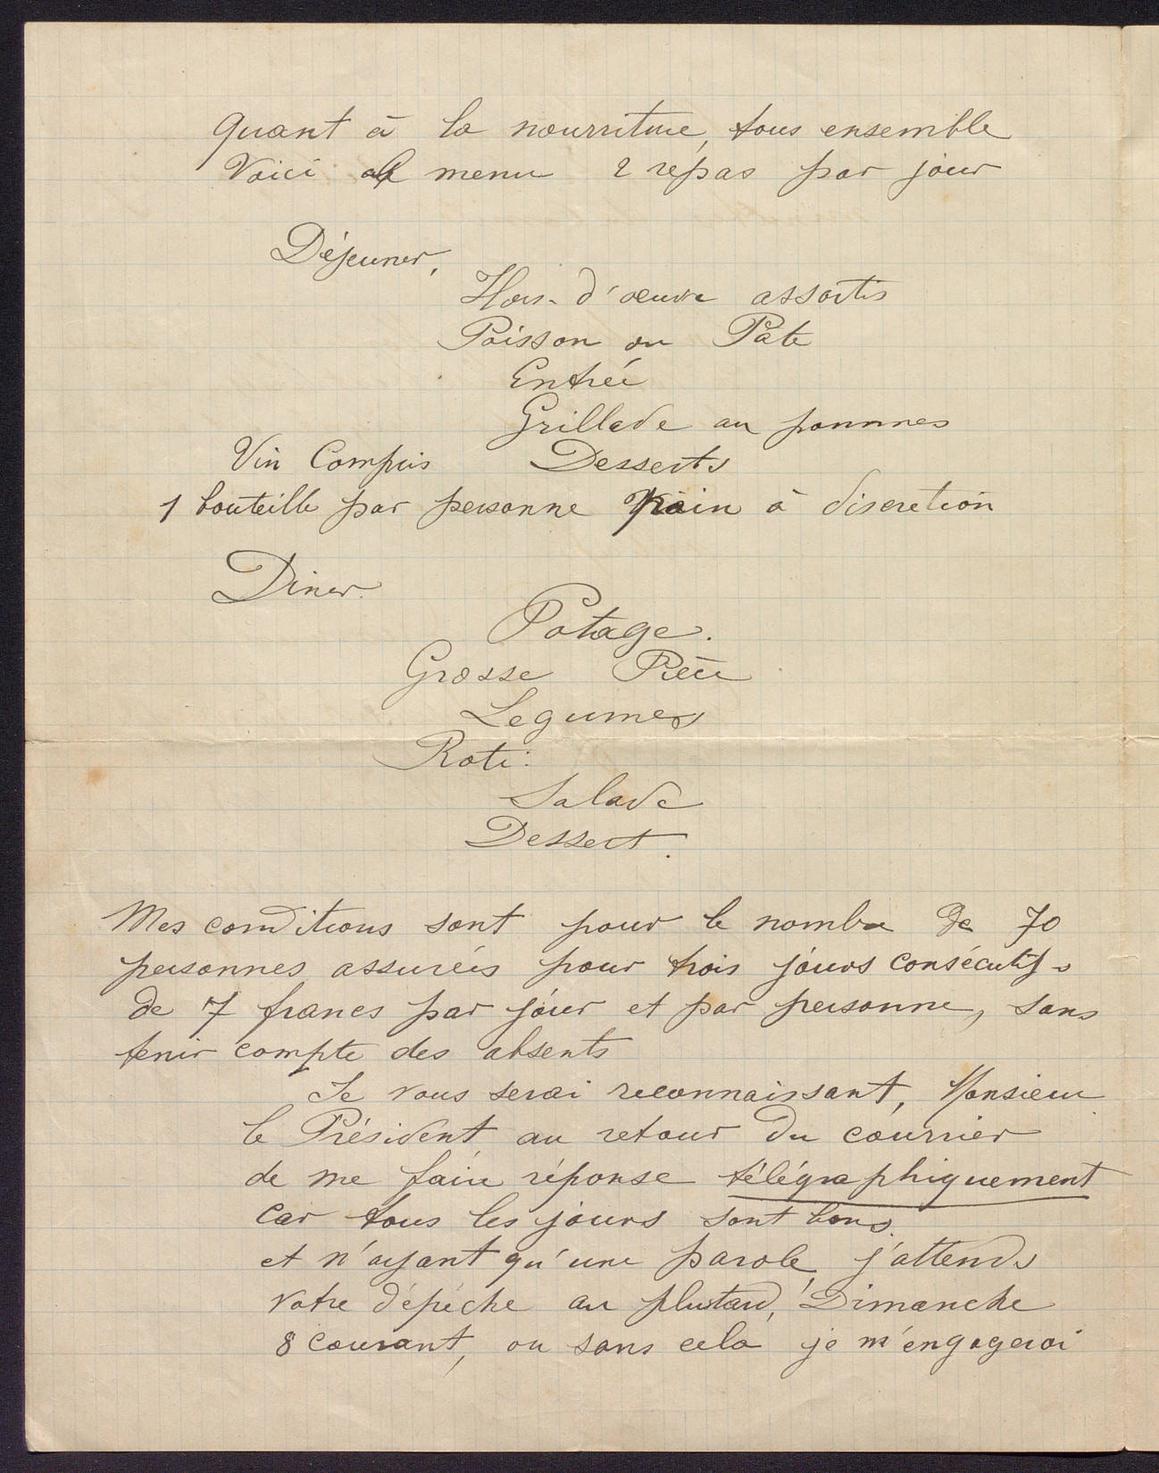 Quant à la nourriture, tous ensemble
Voici le menu 2 repas par jour
Déjeuner,
Hors-d'œuvre assortis
Poisson ou Pâte
Entrée
Grillade au pommes
Vin Compris Desserts
1 bouteille par personne pain à discretion
Diner.
Potage.
Grosse Pièce
Legumes
Roti.
Salade
Dessert.
Mes conditions sont pour le nombre de 70
personnes assurées pour trois jours consécutifs
de 7 francs par jour et par personne, sans
tenir compte des absents
Je vous serai reconnaissant, Monsieur
le Président au retour du courrier
de me faire réponse télégraphiquement
car tous les jours sont bons.
et n'ayant qu'une parole, j'attends
votre dépéche au plustard, Dimanche
8 courant, ou sans cela je m'engagerai